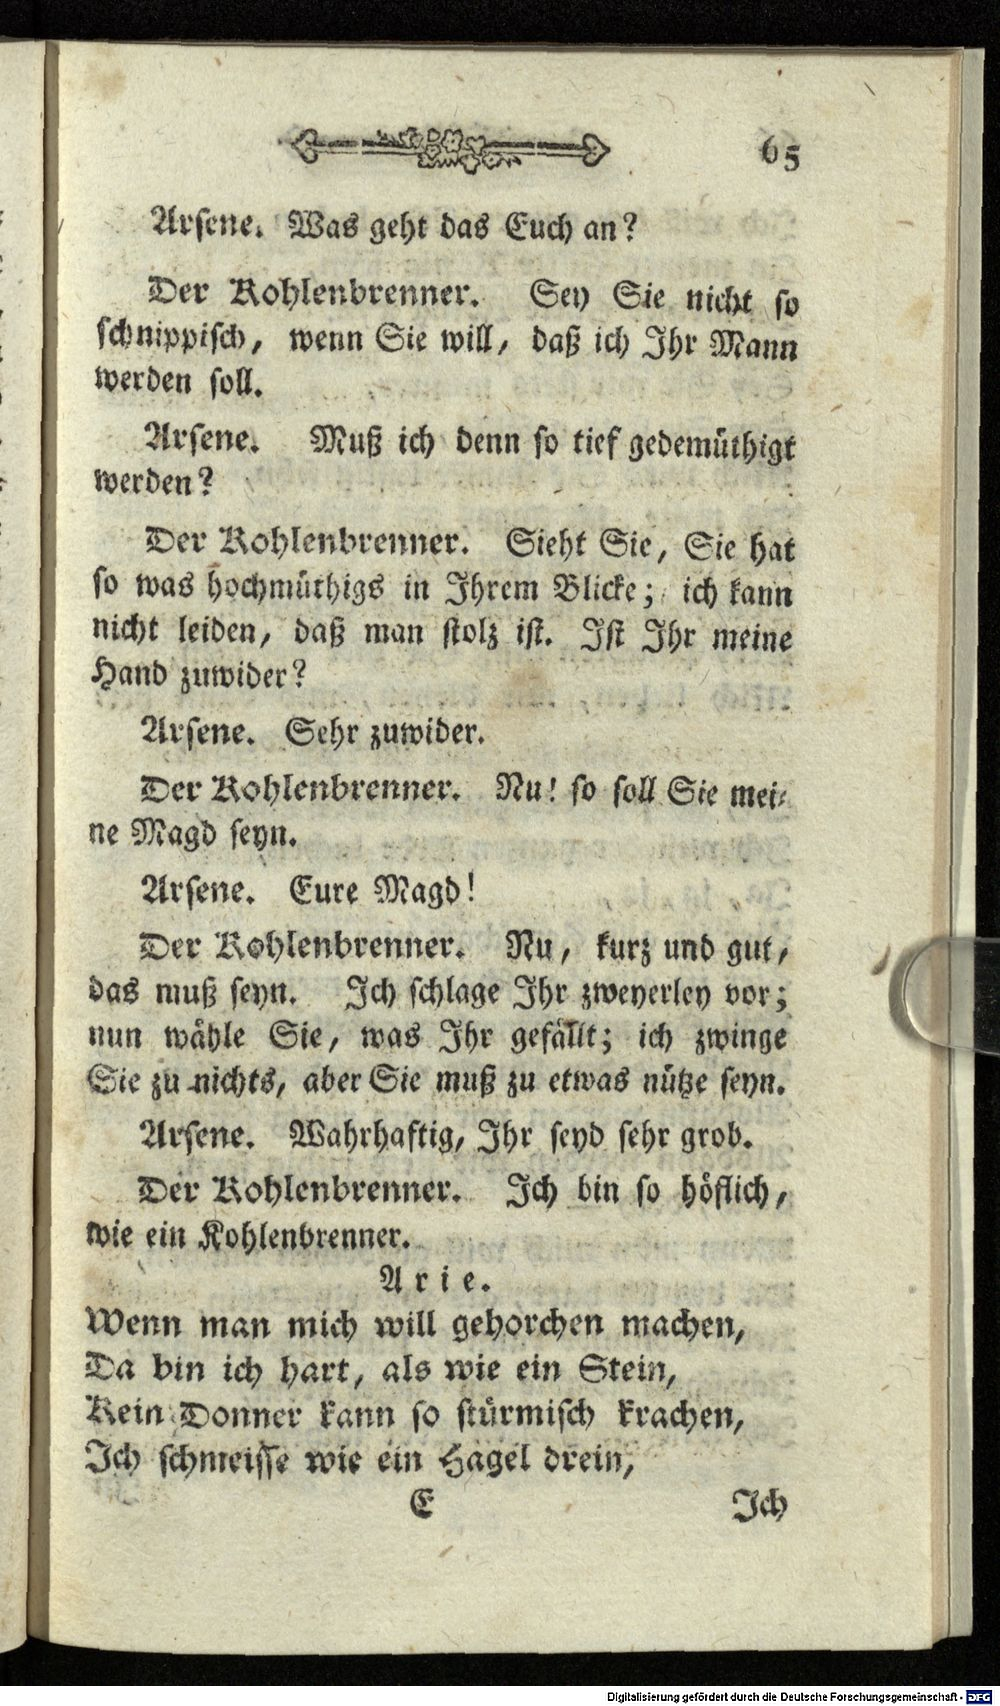 65
Arsene. Was geht das Euch an?
Der Kohlenbrenner. Sey Sie nicht so
schnippisch, wenn Sie will, daß ich Ihr Mann
werden soll.
Arsene. Muß ich denn so tief gedemüthigt
werden?
Der Kohlenbrenner. Sieht Sie, Sie hat
so was hochmüthigs in Ihrem Blicke; ich kann
nicht leiden, daß man stolz ist. Ist Ihr meine
Hand zuwider?
Arsene. Sehr zuwider.
Der Kohlenbrenner. Nu! so soll Sie mei-
ne Magd seyn.
Arsene. Eure Magd!
Der Kohlenbrenner. Nu, kurz und gut,
das muß seyn. Ich schlage Ihr zweyerley vor;
nun wähle Sie, was Ihr gefällt; ich zwinge
Sie zu nichts, aber Sie muß zu etwas nütze seyn.
Arsene. Wahrhaftig, Ihr seyd sehr grob.
Der Kohlenbrenner. Ich bin so höflich,
wie ein Kohlenbrenner.
Arie.
Wenn man mich will gehorchen machen,
Da bin ich hart, als wie ein Stein,
Kein Donner kann so stürmisch krachen,
Ich schmeisse wie ein Hagel drein,
E Ich
Digitalisierung gefördert durch die Deutsche Forschungsgemeinschaft - DFG